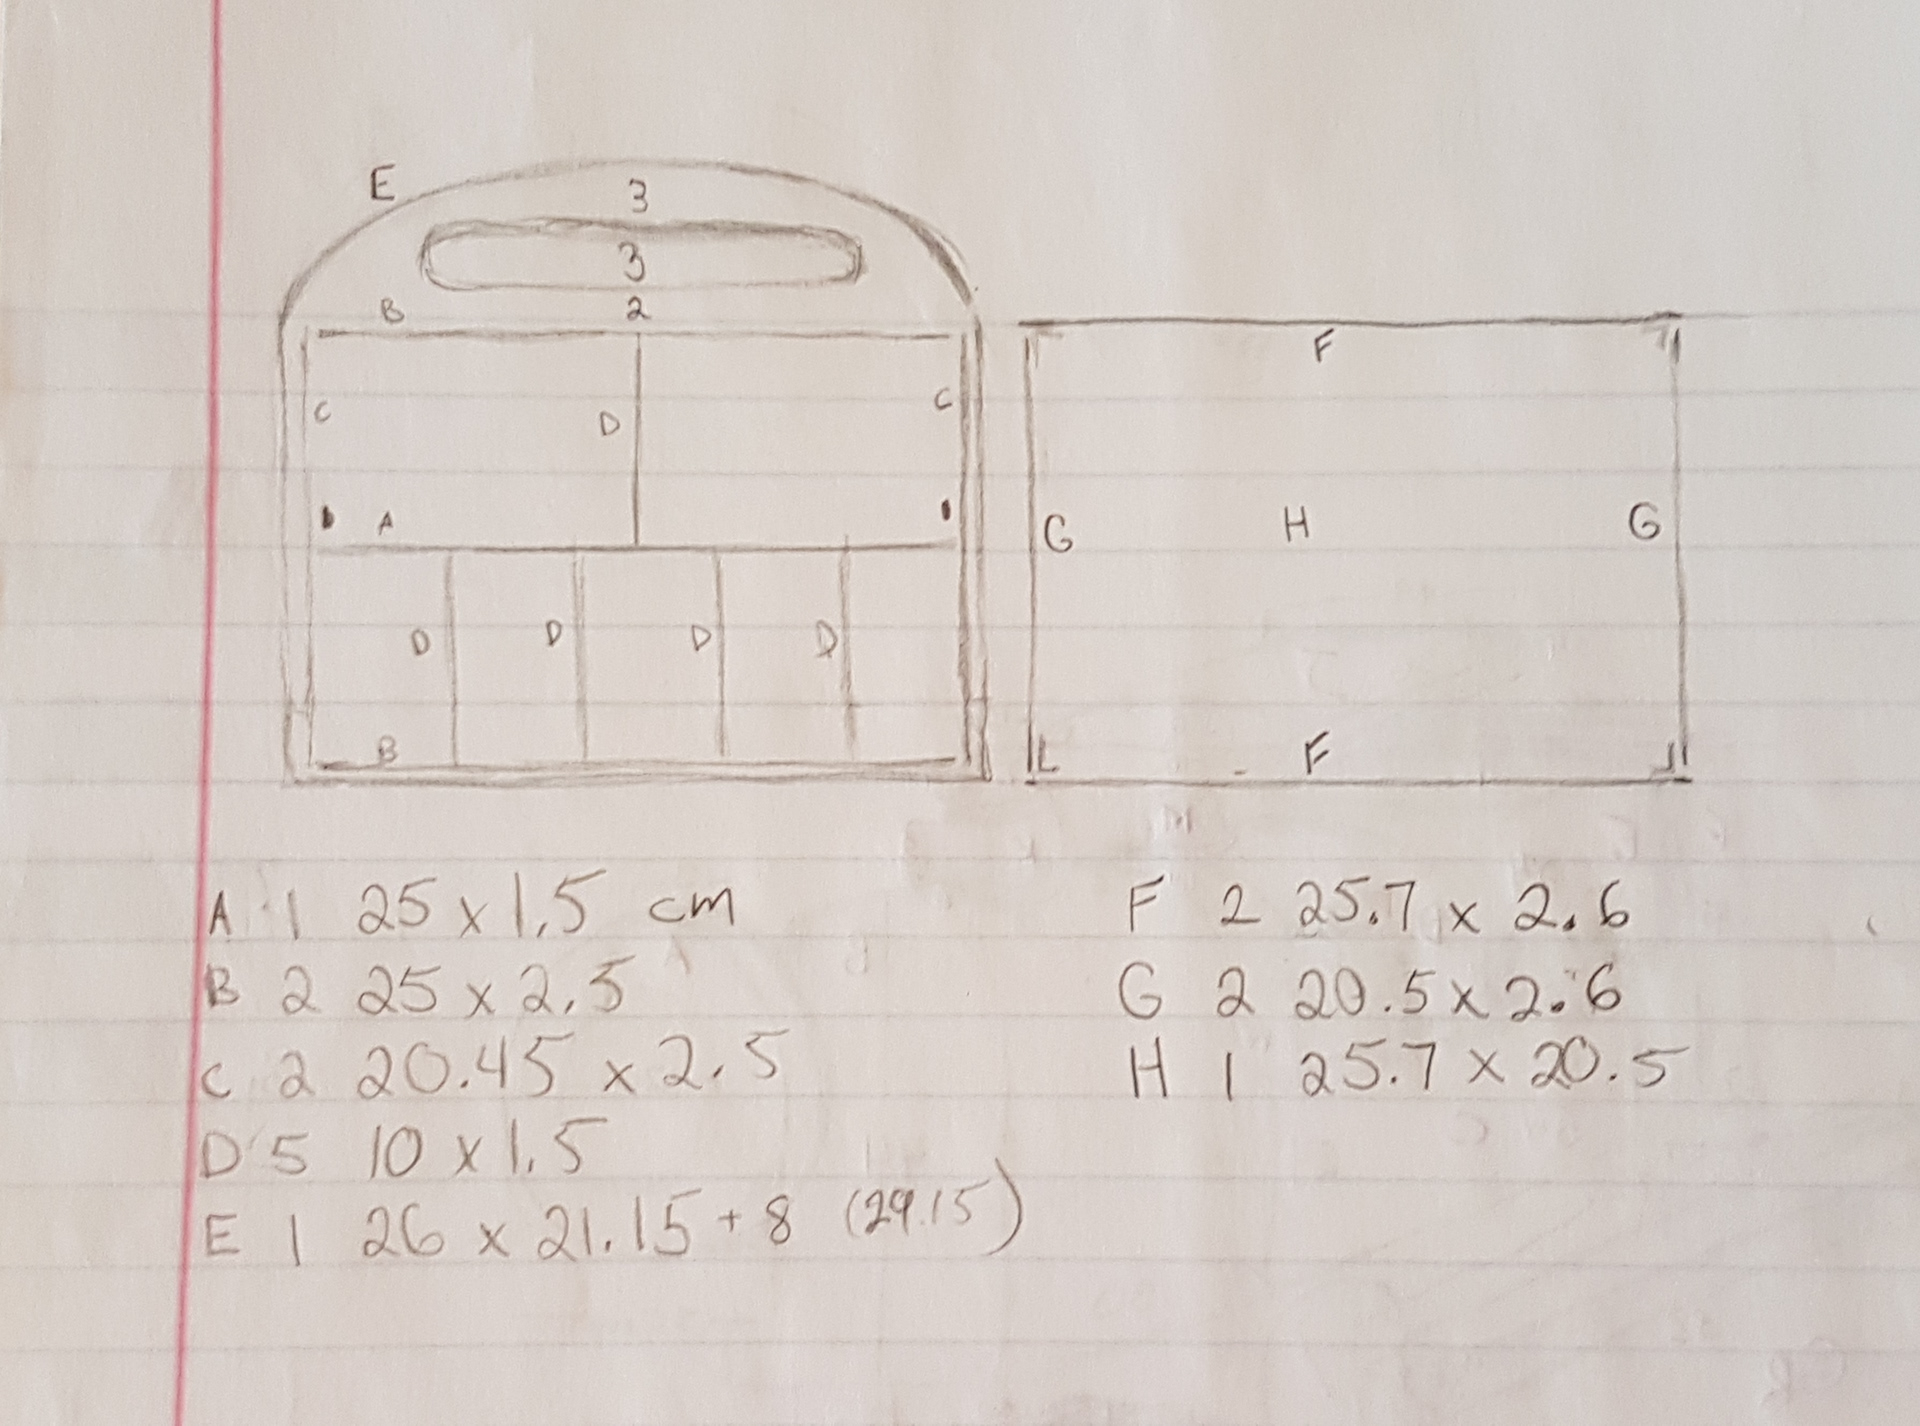 E
3
3
B
2
C
D
C
A
D
D
D
D
B
F
G
H
G
F
A 1 25 x 1.5 cm
B 2 25 x 2.5
C 2 20.45 x 2.5
D 5 10 x 1.5
E 1 26 x 21.15 + 8 (29.15)
F 2 25.7 x 2.6
G 2 20.5 x 2.6
H 1 25.7 x 20.5